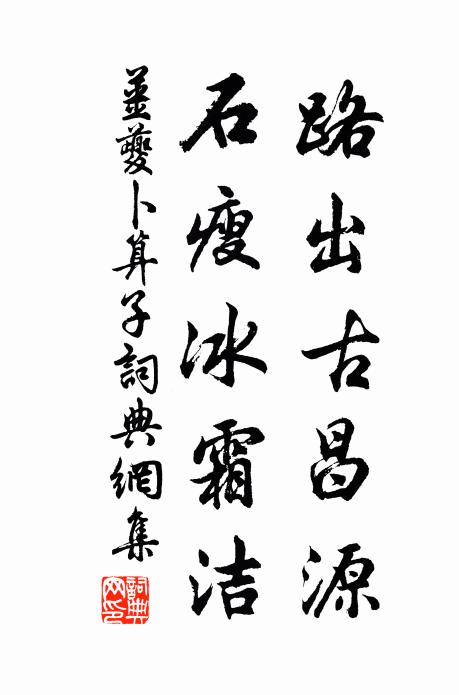 路出古昌源
石瘦冰霜洁
姜夔卜算子詞典網集
詞典
网印